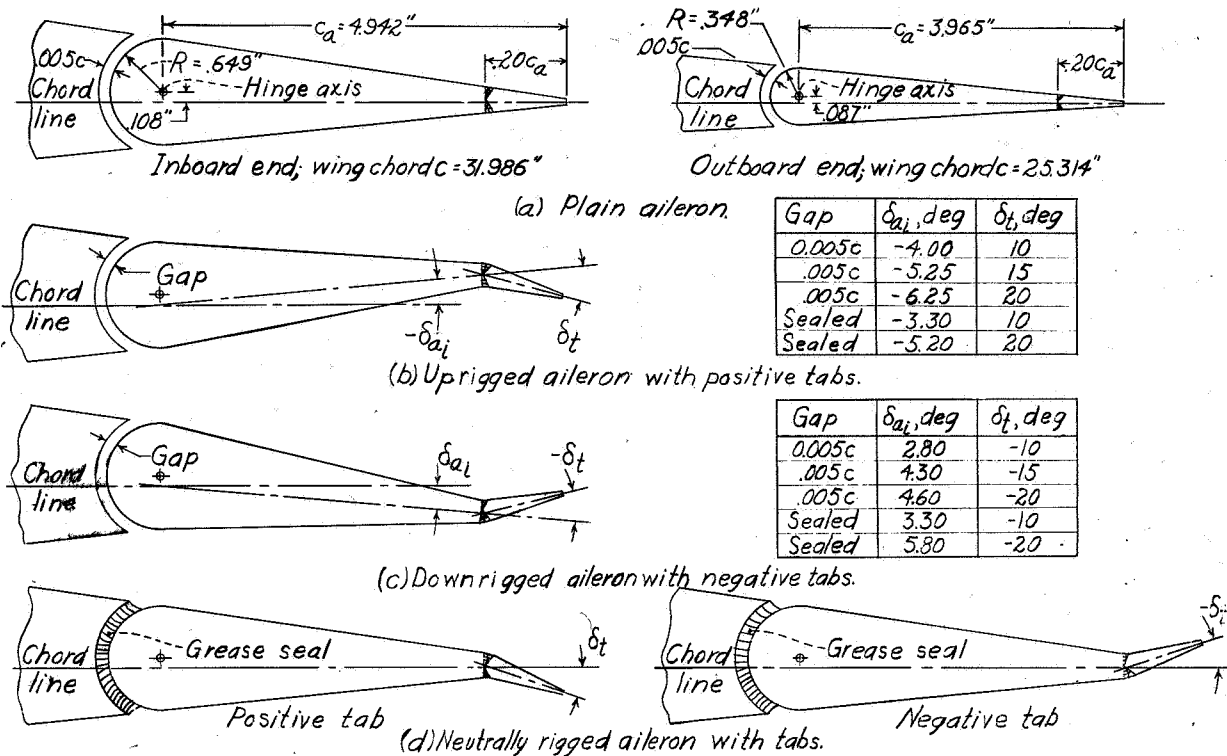 cₐ=4.942"
.005c
R=.649"
.20cₐ
Chord line
Hinge axis
.108"
Inboard end; wing chord c=31.986"
R=.348"
cₐ=3.965"
.005c
.20cₐ
Chord line
Hinge axis
.087"
Outboard end; wing chord c=25.314"
(a) Plain aileron.
Gap
Chord line
-δₐᵢ
δₜ
Gap δₐᵢ, deg δₜ, deg
0.005c -4.00 10
.005c -5.25 15
.005c -6.25 20
Sealed -3.30 10
Sealed -5.20 20
(b) Uprigged aileron with positive tabs.
Gap
Chord line
δₐᵢ
-δₜ
Gap δₐᵢ, deg δₜ, deg
0.005c 2.80 -10
.005c 4.30 -15
.005c 4.60 -20
Sealed 3.30 -10
Sealed 5.80 -20
(c) Downrigged aileron with negative tabs.
Chord line
Grease seal
δₜ
Positive tab
Chord line
Grease seal
-δₜ
Negative tab
(d) Neutrally rigged aileron with tabs.